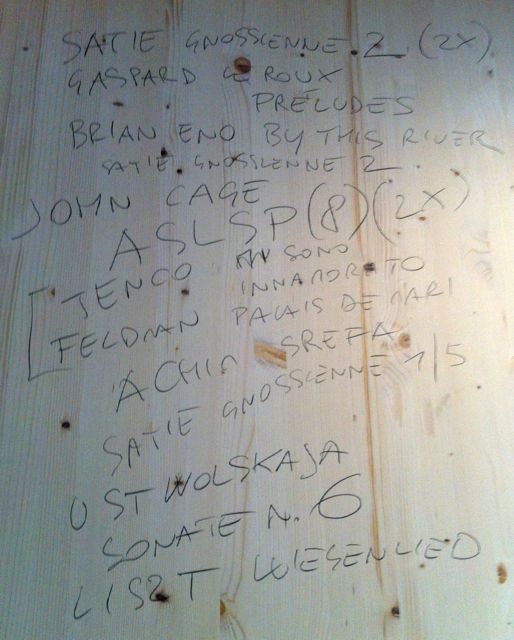 SATIE GNOSSIENNE 2 (2X)
GASPARD LE ROUX
PRÉLUDES
BRIAN ENO BY THIS RIVER
SATIE GNOSSIENNE 2.
JOHN CAGE
ASLSP (8) (2X)
JENCO MI SONO
INNAMORATO
FELDMAN PALAIS DE MARI
ACHIM SREFA
SATIE GNOSSIENNE 1/5
USTWOLSKAJA
SONATE N. 6
LISZT WIEGENLIED